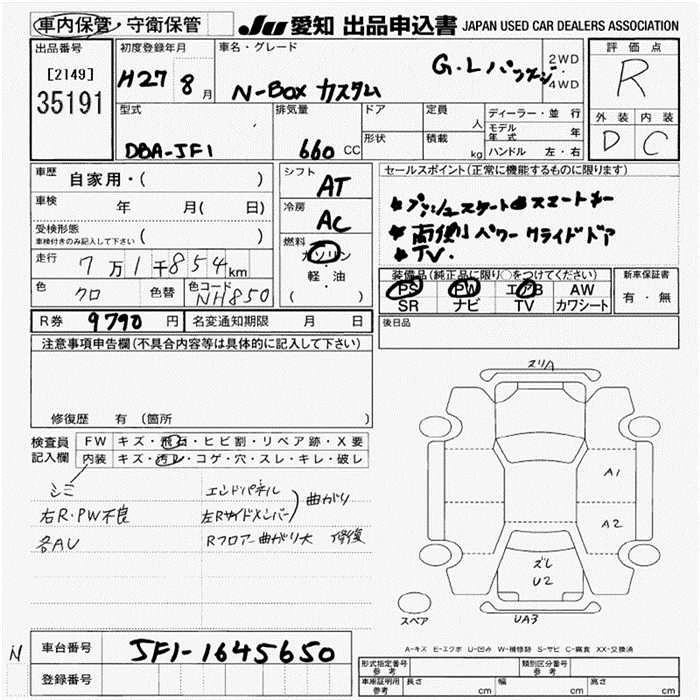 車内保管・守衛保管
JU 愛知 出品申込書 JAPAN USED CAR DEALERS ASSOCIATION
出品番号
[2149]
35191
初度登録年月
H27 8月
車名・グレード
N-Box カスタム G・Lパッケージ
2WD・4WD
評価点
R
外装 内装
D C
型式
DBA-JF1
排気量
660 CC
ドア
形状
定員 人
積載 kg
ディーラー・並行
モデル年式 年
ハンドル 左・右
車歴
自家用・( )
車検 年 月( 日)
受検形態
車検付きのみ記入して下さい ( )
走行 7万1千854km
色 クロ 色替 色コード NH850
シフト AT
冷房 AC
燃料 ガソリン
軽・油
( )
セールスポイント(正常に機能するものに限ります)
★プッシュスタート スマートキー
★両側パワースライドドア
★TV.
装備品(純正品に限り○をつけてください)
PS PW エアB AW
SR ナビ TV カワシート
新車保証書
有・無
R券 9790円 名変通知期限 月 日
後日品
注意事項申告欄(不具合内容等は具体的に記入して下さい)
修復歴 有 (箇所
検査員記入欄
FW キズ・飛石・ヒビ割・リペア跡・X要
内装 キズ・汚レ・コゲ・穴・スレ・キレ・破レ
シミ
右R・PW不良
各AU
エンドパネル
左Rサイドメンバー 曲がり
Rフロアー曲がり大 修復
スリA
A1
A2
ズレ
U2
UA3
スペア
A-キズ E-エクボ U-凹み W-補修跡 S-サビ C-腐食 XX-交換済
N
車台番号 JF1-1645650
登録番号
形式指定番号 参考
類別区分番号 参考
車庫証明用 参考 長さ cm 幅 cm 高さ cm